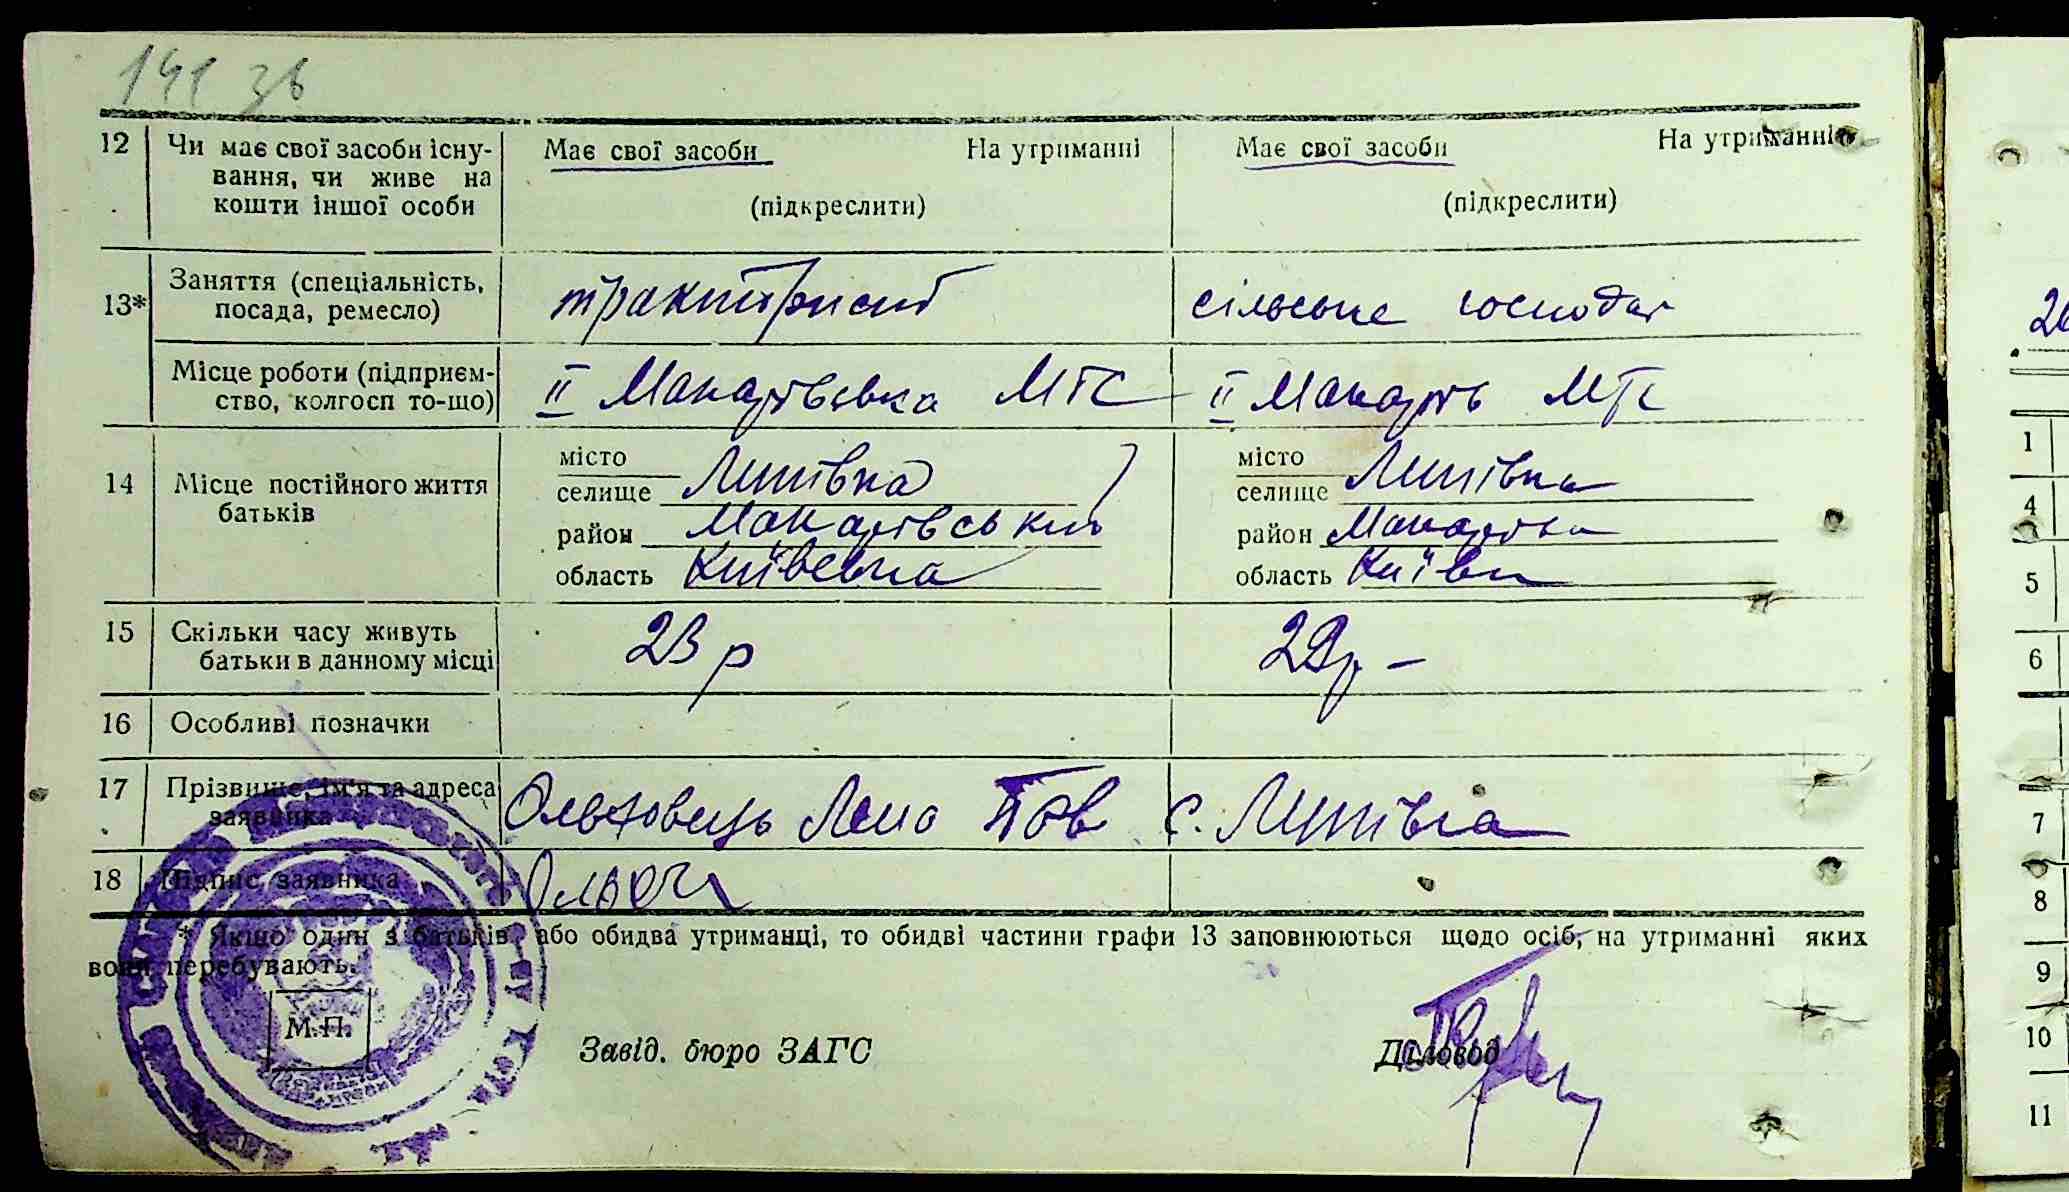 141 зв
12 Чи має свої засоби існу- Має свої засоби На утриманні Має свої засоби На утриманні
вання, чи живе на
кошти іншої особи (підкреслити) (підкреслити)
Заняття (спеціальність, тракторист сільське господар
13* посада, ремесло)
Місце роботи (підприєм- II Макарівська МТС II Макарів МТС
ство, колгосп то-що)
місто місто
14 Місце постійного життя селище Липівка селище Липівка
батьків район Макарівський район Макарівка
область Київська область Київ
15 Скільки часу живуть 23 р 22 р –
батьки в данному місці
16 Особливі позначки
17 Прізвище, ім'я та адреса Ольховець с. Липівка
заявника
18 Підпис заявника
* Якщо один з батьків, або обидва утриманці, то обидві частини графи 13 заповнюються щодо осіб, на утриманні яких
вони перебувають.
М.П.
Завід. бюро ЗАГС Діловод
1
4
5
6
7
8
9
10
11